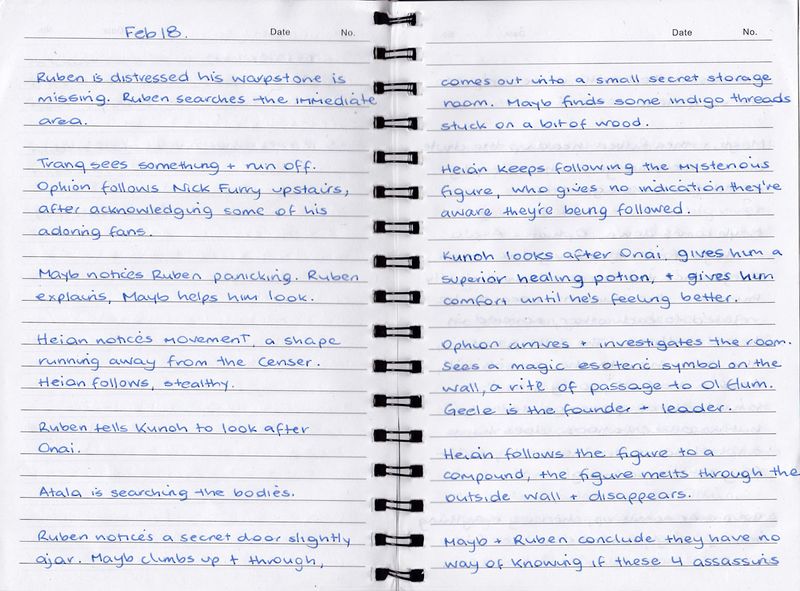 Feb 18.
Date
No.
Ruben is distressed his warpstone is
missing. Ruben searches the immediate
area.
Tranq sees something + run off.
Ophion follows Nick Furry upstairs,
after acknowledging some of his
adoring fans.
Mayb notices Ruben panicking. Ruben
explains, Mayb helps him look.
Heian notices movement, a shape
running away from the censer.
Heian follows, stealthy.
Ruben tells Kunoh to look after
Onai.
Atala is searching the bodies.
Ruben notices a secret door slightly
ajar. Mayb climbs up + through,
Date
No.
comes out into a small secret storage
room. Mayb finds some indigo threads
stuck on a bit of wood.
Heian keeps following the mysterious
figure, who gives no indication they're
aware they're being followed.
Kunoh looks after Onai, gives him a
superior healing potion, + gives him
comfort until he's feeling better.
Ophion arrives + investigates the room.
Sees a magic esoteric symbol on the
wall, a rite of passage to Ol Elum.
Geele is the founder + leader.
Heian follows the figure to a
compound, the figure melts through the
outside wall + disappears.
Mayb + Ruben conclude they have no
way of knowing if these 4 assassins